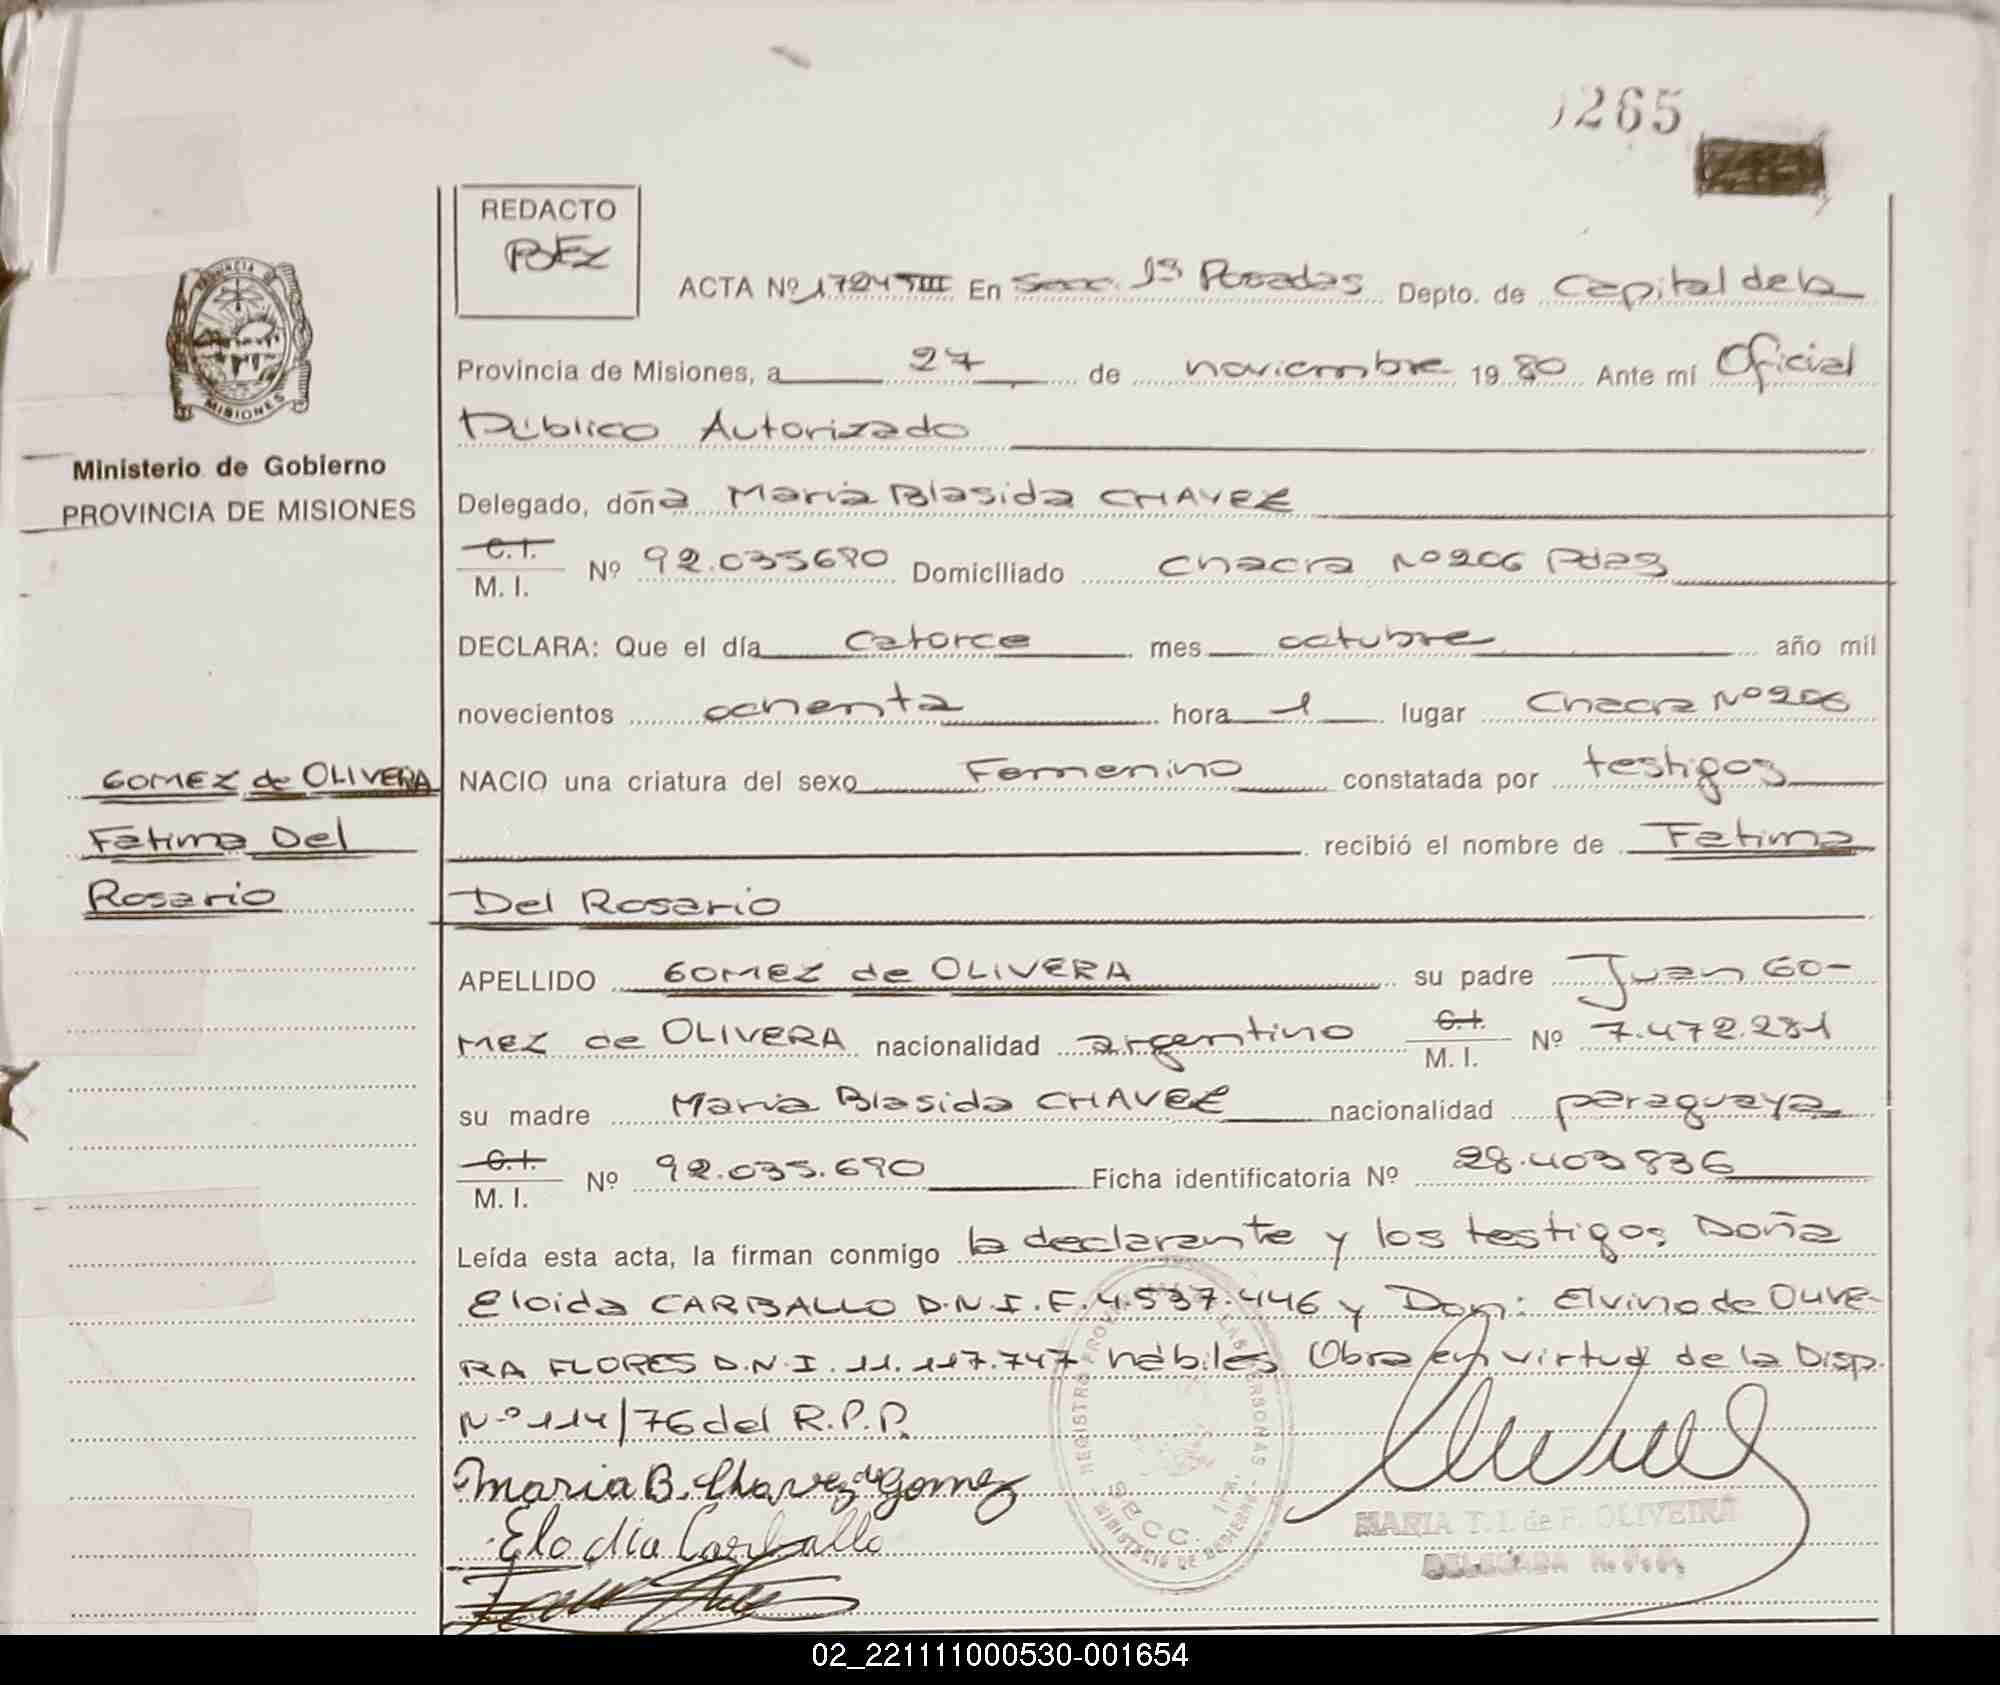 265
REDACTO
BEZ
ACTA Nº 1724 TIII En Secc. 1ª Posadas Depto. de Capital de la
Provincia de Misiones, a 27 de noviembre 1980 Ante mí Oficial
Público Autorizado
Ministerio de Gobierno
PROVINCIA DE MISIONES
Delegado, doña Maria Blasida CHAVEZ
C.I. / M. I. Nº 92.035690 Domiciliado Chacra Nº 206 Pdas
DECLARA: Que el día catorce mes octubre año mil
novecientos ochenta hora 1 lugar Chacra Nº 206
GOMEZ de OLIVERA
Fatima Del
Rosario
NACIO una criatura del sexo Femenino constatada por testigos
recibió el nombre de Fatima
Del Rosario
APELLIDO GOMEZ de OLIVERA su padre Juan GO-
MEZ de OLIVERA nacionalidad argentino C.I. / M. I. Nº 7.472.281
su madre Maria Blasida CHAVEZ nacionalidad paraguaya
C.I. / M. I. Nº 92.035.690 Ficha identificatoria Nº 28.403836
Leída esta acta, la firman conmigo la declarante y los testigos Doña
Eloida CARBALLO D.N.I.F. 4.537.446 y Don: Elvino de OLIVE-
RA FLORES D.N.I. 11.117.747 hábiles Obra en virtud de la Disp.
Nº 114/76 del R.P.P.
Maria B. Chavez de Gomez
Elodia Carballo
MARIA T. I. de F. OLIVEIRA
DELEGADA
SECC. 1ra.
MINISTERIO DE GOBIERNO
MISIONES
02_221111000530-001654